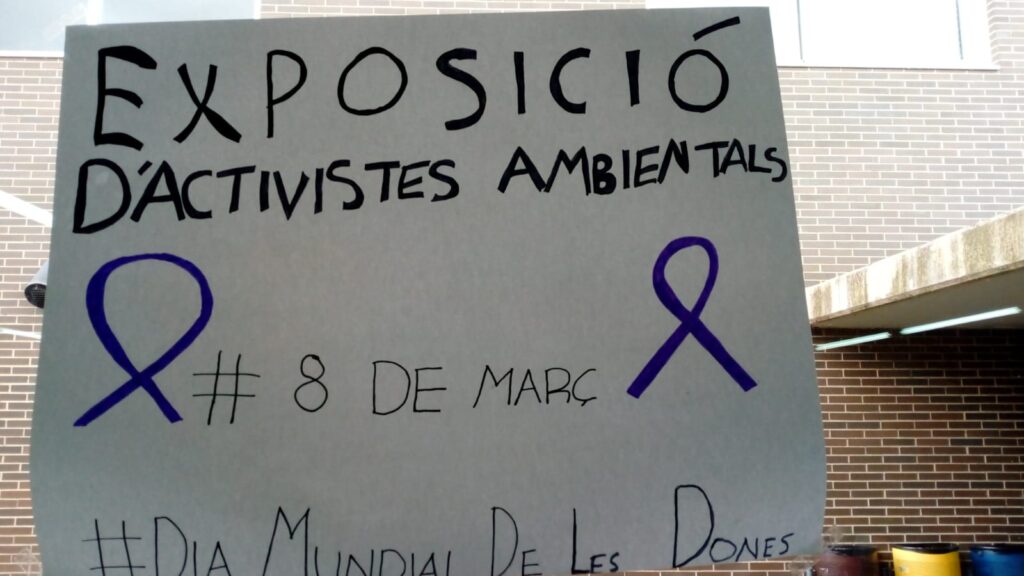 EXPOSICIÓ
D'ACTIVISTES AMBIENTALS
# 8 DE MARÇ
#DIA MUNDIAL DE LES DONES